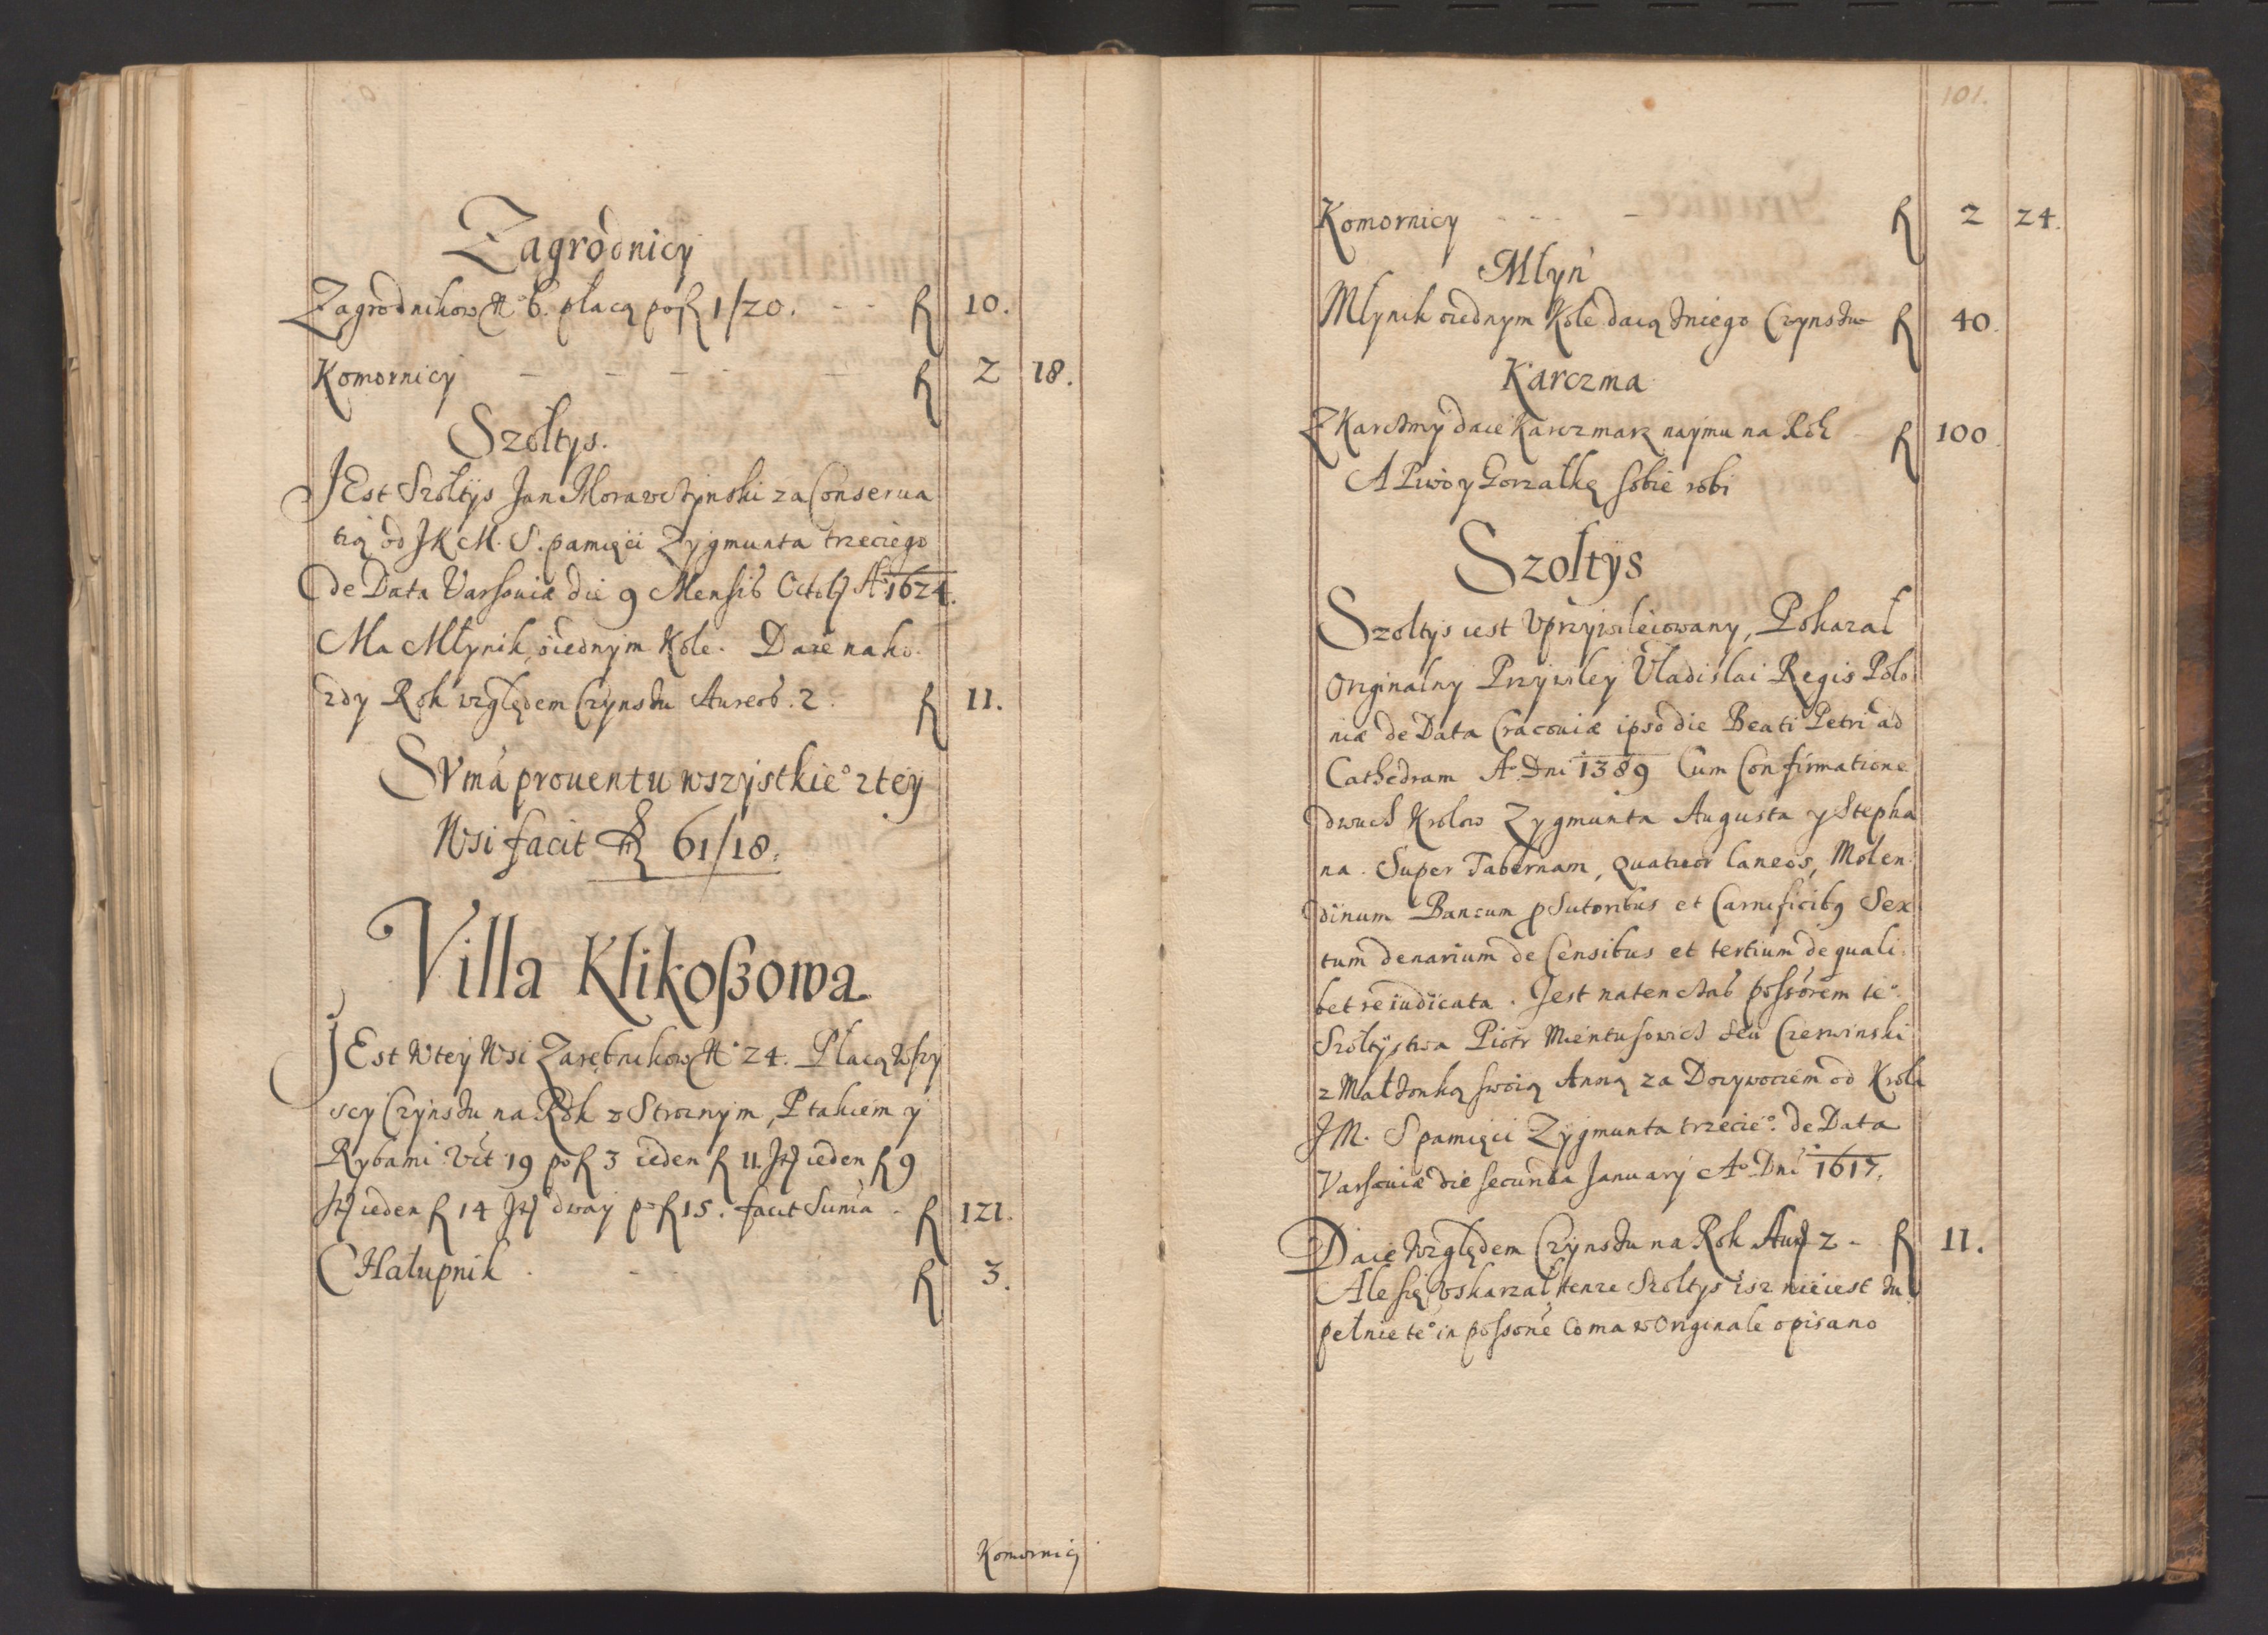 Zagrodnicy
Zagrodnikow N° 6. płacą po f 1/20. - - f 10.
Komornicy - - - - - f 2 18.
Szołtys.
JEst Szołtys Jan Morawczynski za Conserua
tią od JKM. S. pamięci Zygmunta trzeciego
de Data Varsouiæ die 9 Mensis Octob A° 1624.
Ma Młynik, oiednym Kole. Daie na ko
zdy Rok względem Czynszu Aureos. 2. f 11.
SVmá prouentu wszystkie° ztey
Wsi facit f 61/18.
Villa Klikoßowa
JEst w tey Wsi Zarębnikow N° 24. Płacą wszy
scy Czynszu na Rok z Stroznym, Ptakiem y
Rybami Vt 19 po f 3 ieden f 11. It ieden f 9
It ieden f 14 It dway po f 15. facit Sumá - f 121.
CHałupnik - - f 3.
Komornicy
101.
Komornicy - - - - f 2 24.
Młyn
Młynik oiednym Kole daią zniego Czynszu f 40.
Karczma
Z Karczmy daie Karczmarz naymu na Rok - f 100
A Piwo y Gorzałkę sobie robi
Szołtys
Szołtys iest Vprzywileiowany, Pokazał
Originalny Przywiley Vladislai Regis Polo
niæ de Data Cracouiæ ipso die Beati Petri ad
Cathedram A° Dni 1389 Cum Confirmatione
dwuch Krolow Zygmunta Augusta y Stepha
na. Super Tabernam, quatuor laneos, Molen
dinum Bancum p Sutoribus et Carnificibq Sex
tum denarium de Censibus et tertium de quali
bet re iudicata. Jest natenczas possorem te°
Szołtystwa Piotr Mientusowicz seu Czerwinski
z Małzonką swoią Anną za Dozywociem od Krola
JM. S pamięci Zygmunta trzecie° de Data
Varsouiæ die secunda January A° Dni 1617.
Daie względem Czynszu na Rok Aur 2 - f 11.
Ale się vskarzał tenze Szołtys isz nieiest zu
pełnie te° in possone co ma w Originale opisano